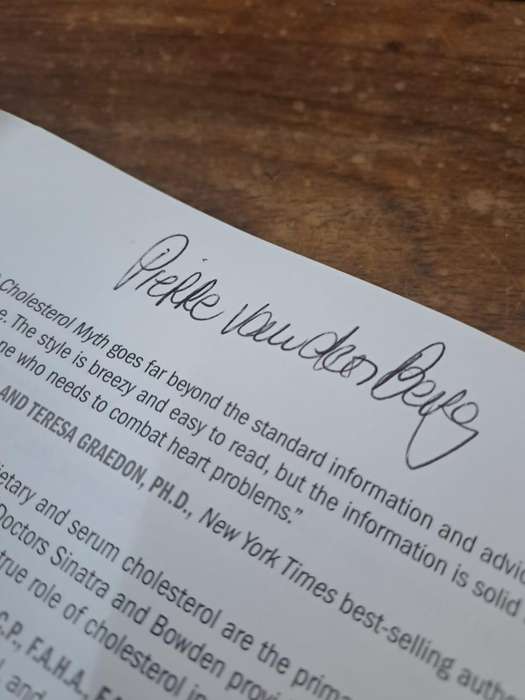 Pierre van den Berg
Cholesterol Myth goes far beyond the standard information and advic
e. The style is breezy and easy to read, but the information is solid
ne who needs to combat heart problems."
AND TERESA GRAEDON, PH.D., New York Times best-selling autho
ietary and serum cholesterol are the prim
Doctors Sinatra and Bowden provi
true role of cholesterol in
C.P., F.A.H.A.,
and